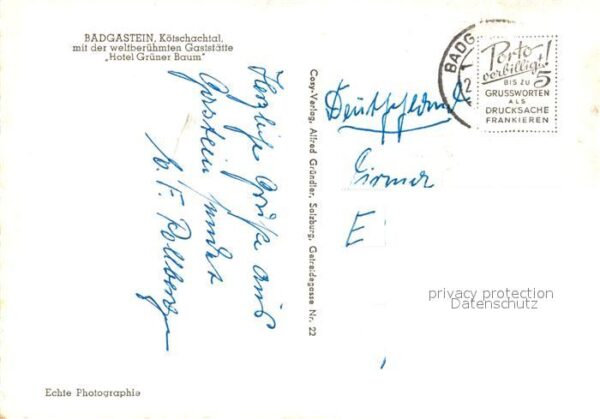 BADGASTEIN, Kötschachtal,
mit der weltberühmten Gaststätte
„Hotel Grüner Baum"
Herzliche Grüße aus
Gastein sendet
Cosy-Verlag, Alfred Gründler, Salzburg, Getreidegasse Nr. 22
BADG
Porto
verbilligt!
BIS ZU 5
GRUSSWORTEN
ALS
DRUCKSACHE
FRANKIEREN
Deutschland
Firma
E
privacy protection
Datenschutz
Echte Photographie